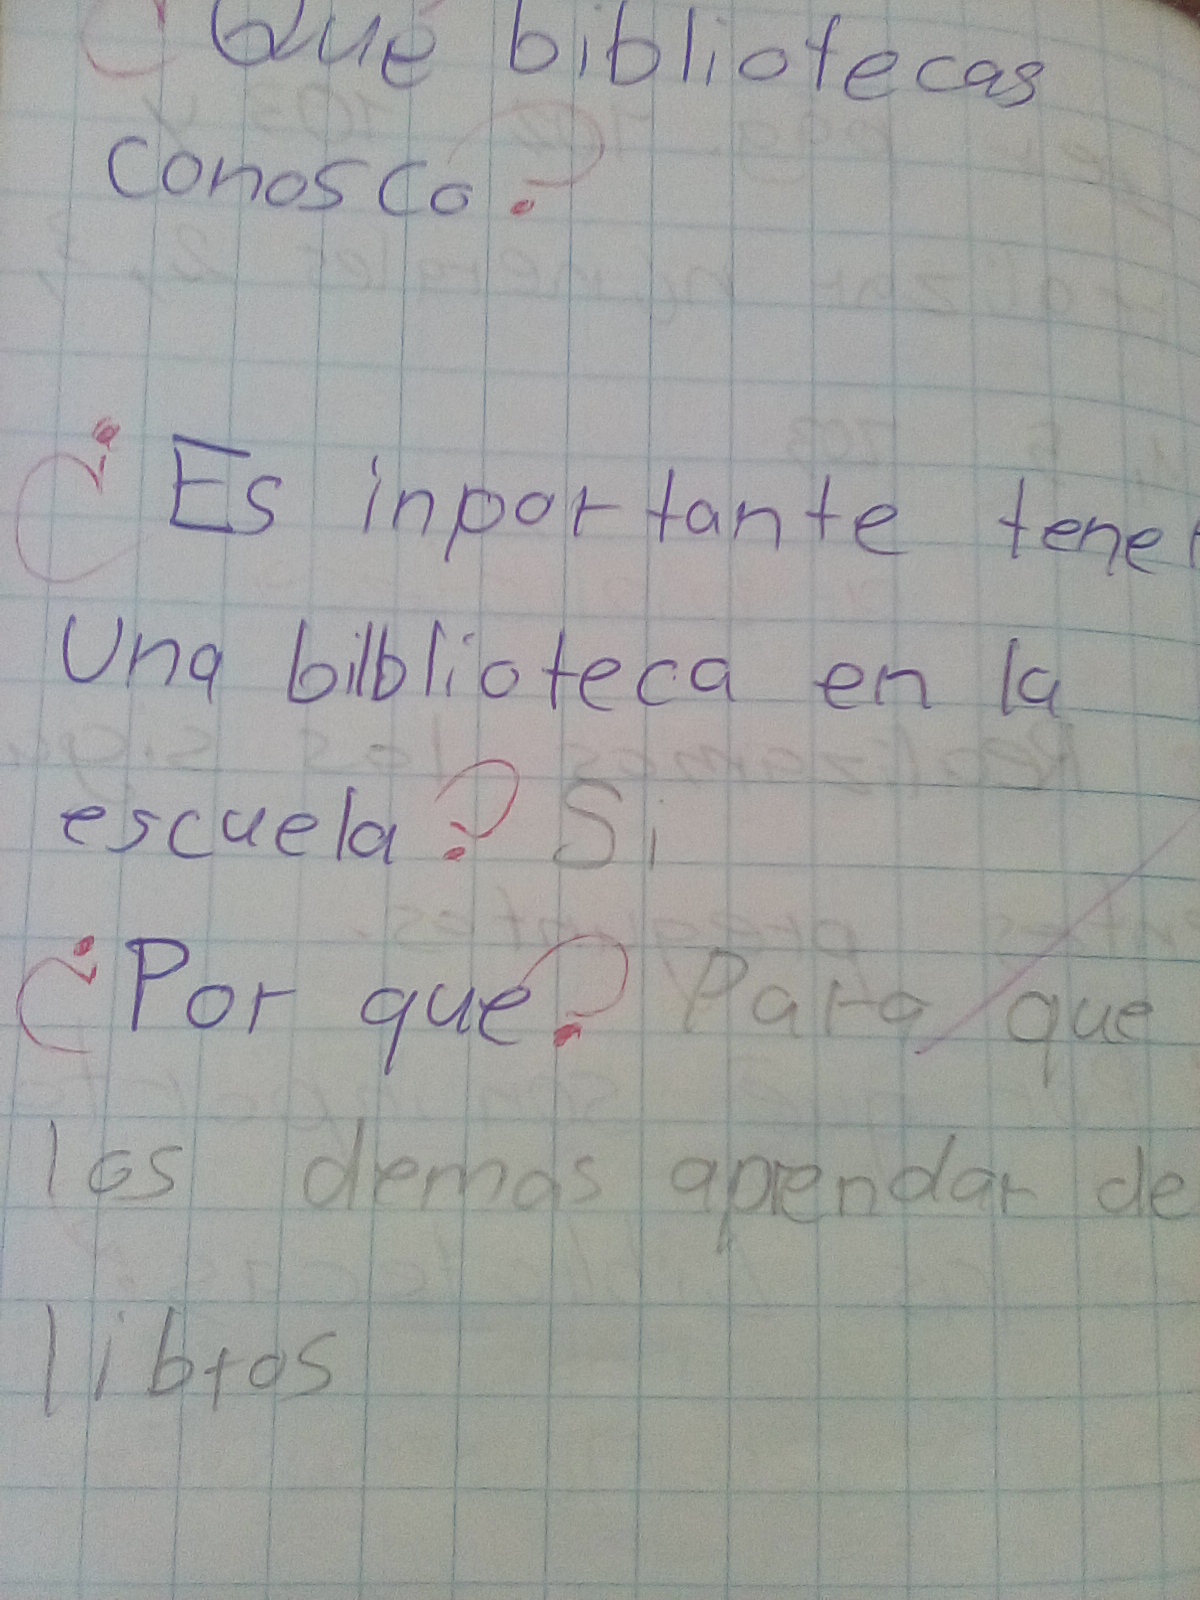 ¿Qué bibliotecas
conosco?
¿Es inportante tener
Una bilblioteca en la
escuela? Si
¿Por que? Para que
los demas aprendar de
libros